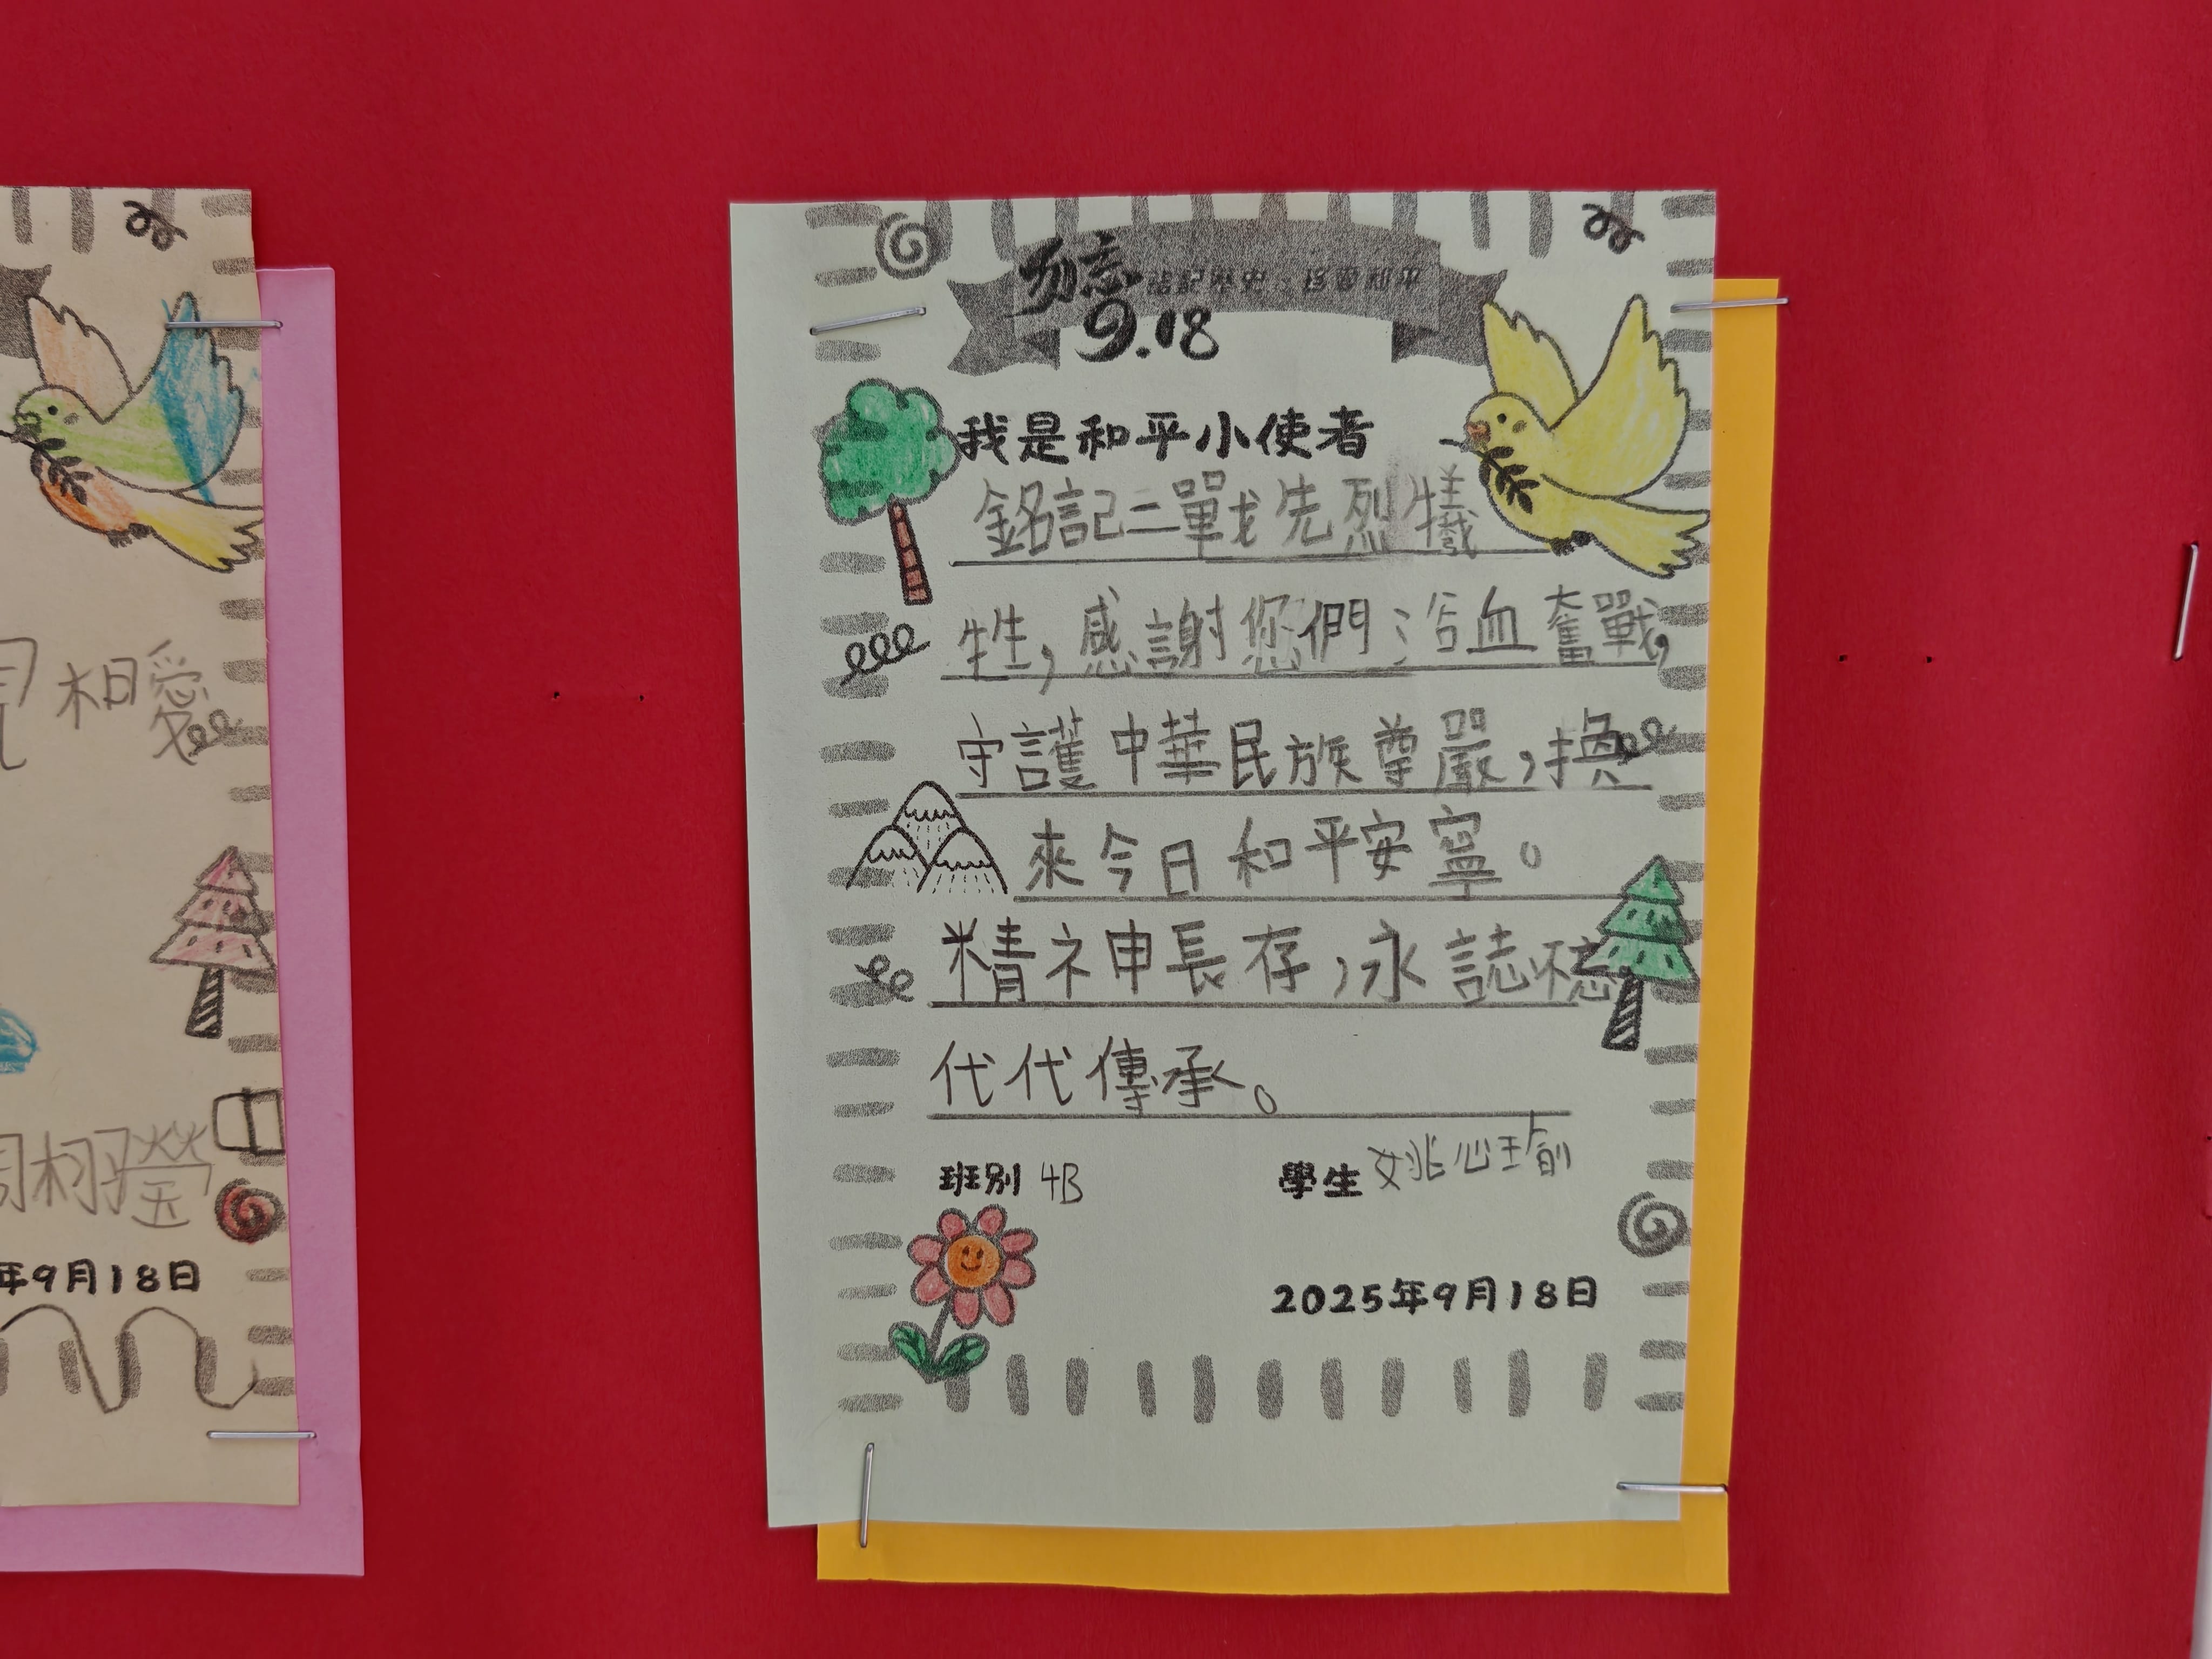 勿忘
9.18
銘記歷史，珍愛和平
我是和平小使者
銘記二戰先烈犧
牲，感謝您們浴血奮戰，
守護中華民族尊嚴，換
來今日和平安寧。
精神長存，永誌
代代傳承。
班別 4B
學生 姚心瑜
2025年9月18日
相愛
柯瑩
年9月18日